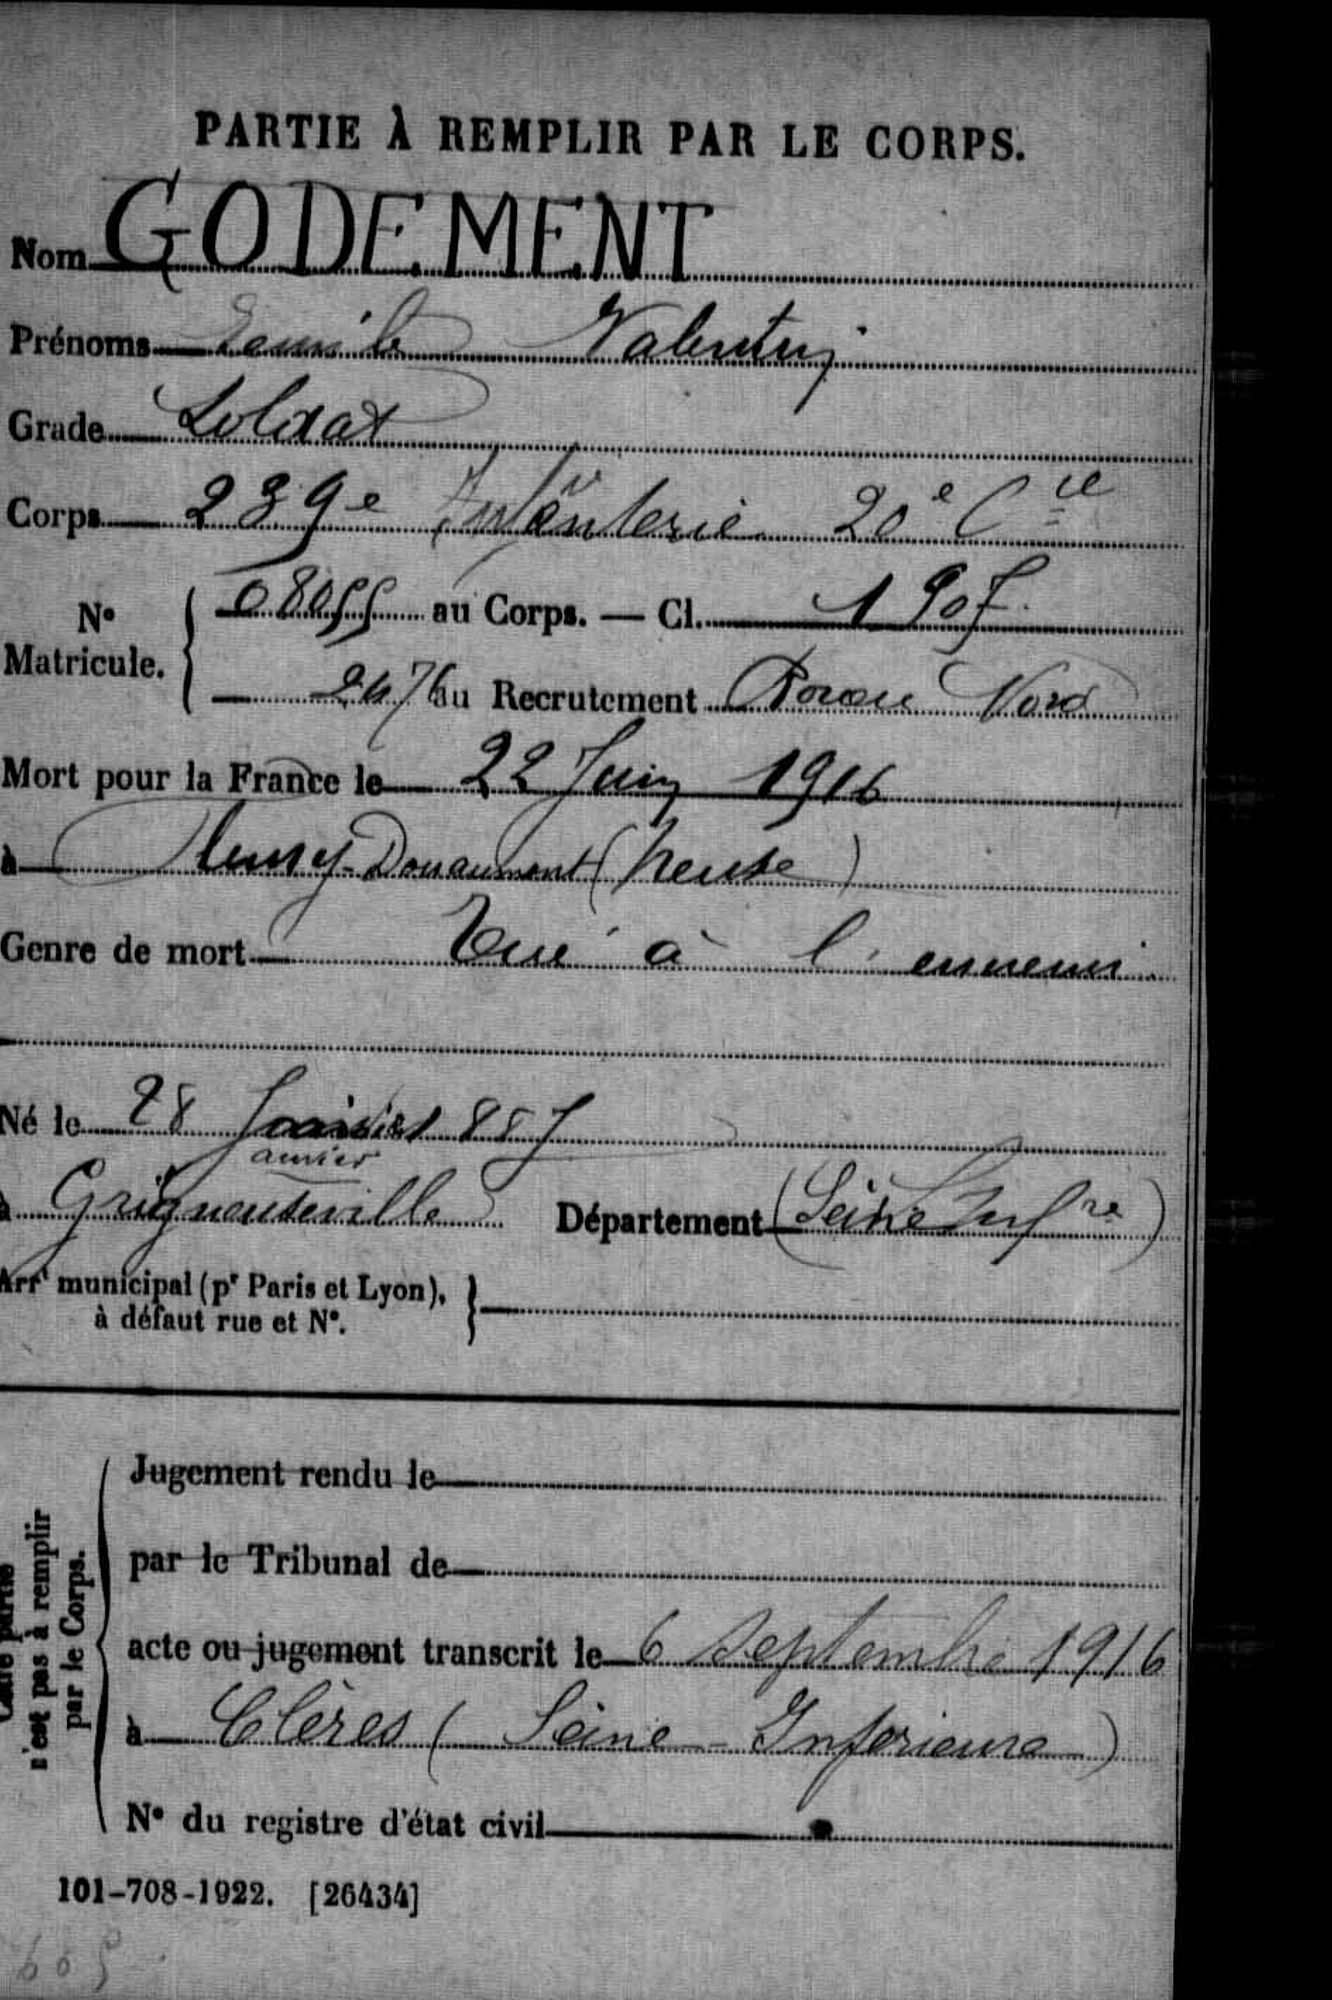 PARTIE À REMPLIR PAR LE CORPS.
Nom GODEMENT
Prénoms Emile Valentin
Grade Soldat
Corps 239e Infanterie 20e Cie
No Matricule. { 08055 au Corps. — Cl. 1907
2476 au Recrutement Rouen Nord
Mort pour la France le 22 Juin 1916
à Fleury-Douaumont (Meuse)
Genre de mort Tué à l'ennemi
Né le 28 Janvier 1887
anvier
à Grigneuseville Département (Seine Infre)
Arrt municipal (pr Paris et Lyon), }
à défaut rue et No.
Cette partie
n'est pas à remplir
par le Corps.
Jugement rendu le
par le Tribunal de
acte ou jugement transcrit le 6 septembre 1916
à Clères (Seine-Inferieure)
No du registre d'état civil
101-708-1922. [26434]